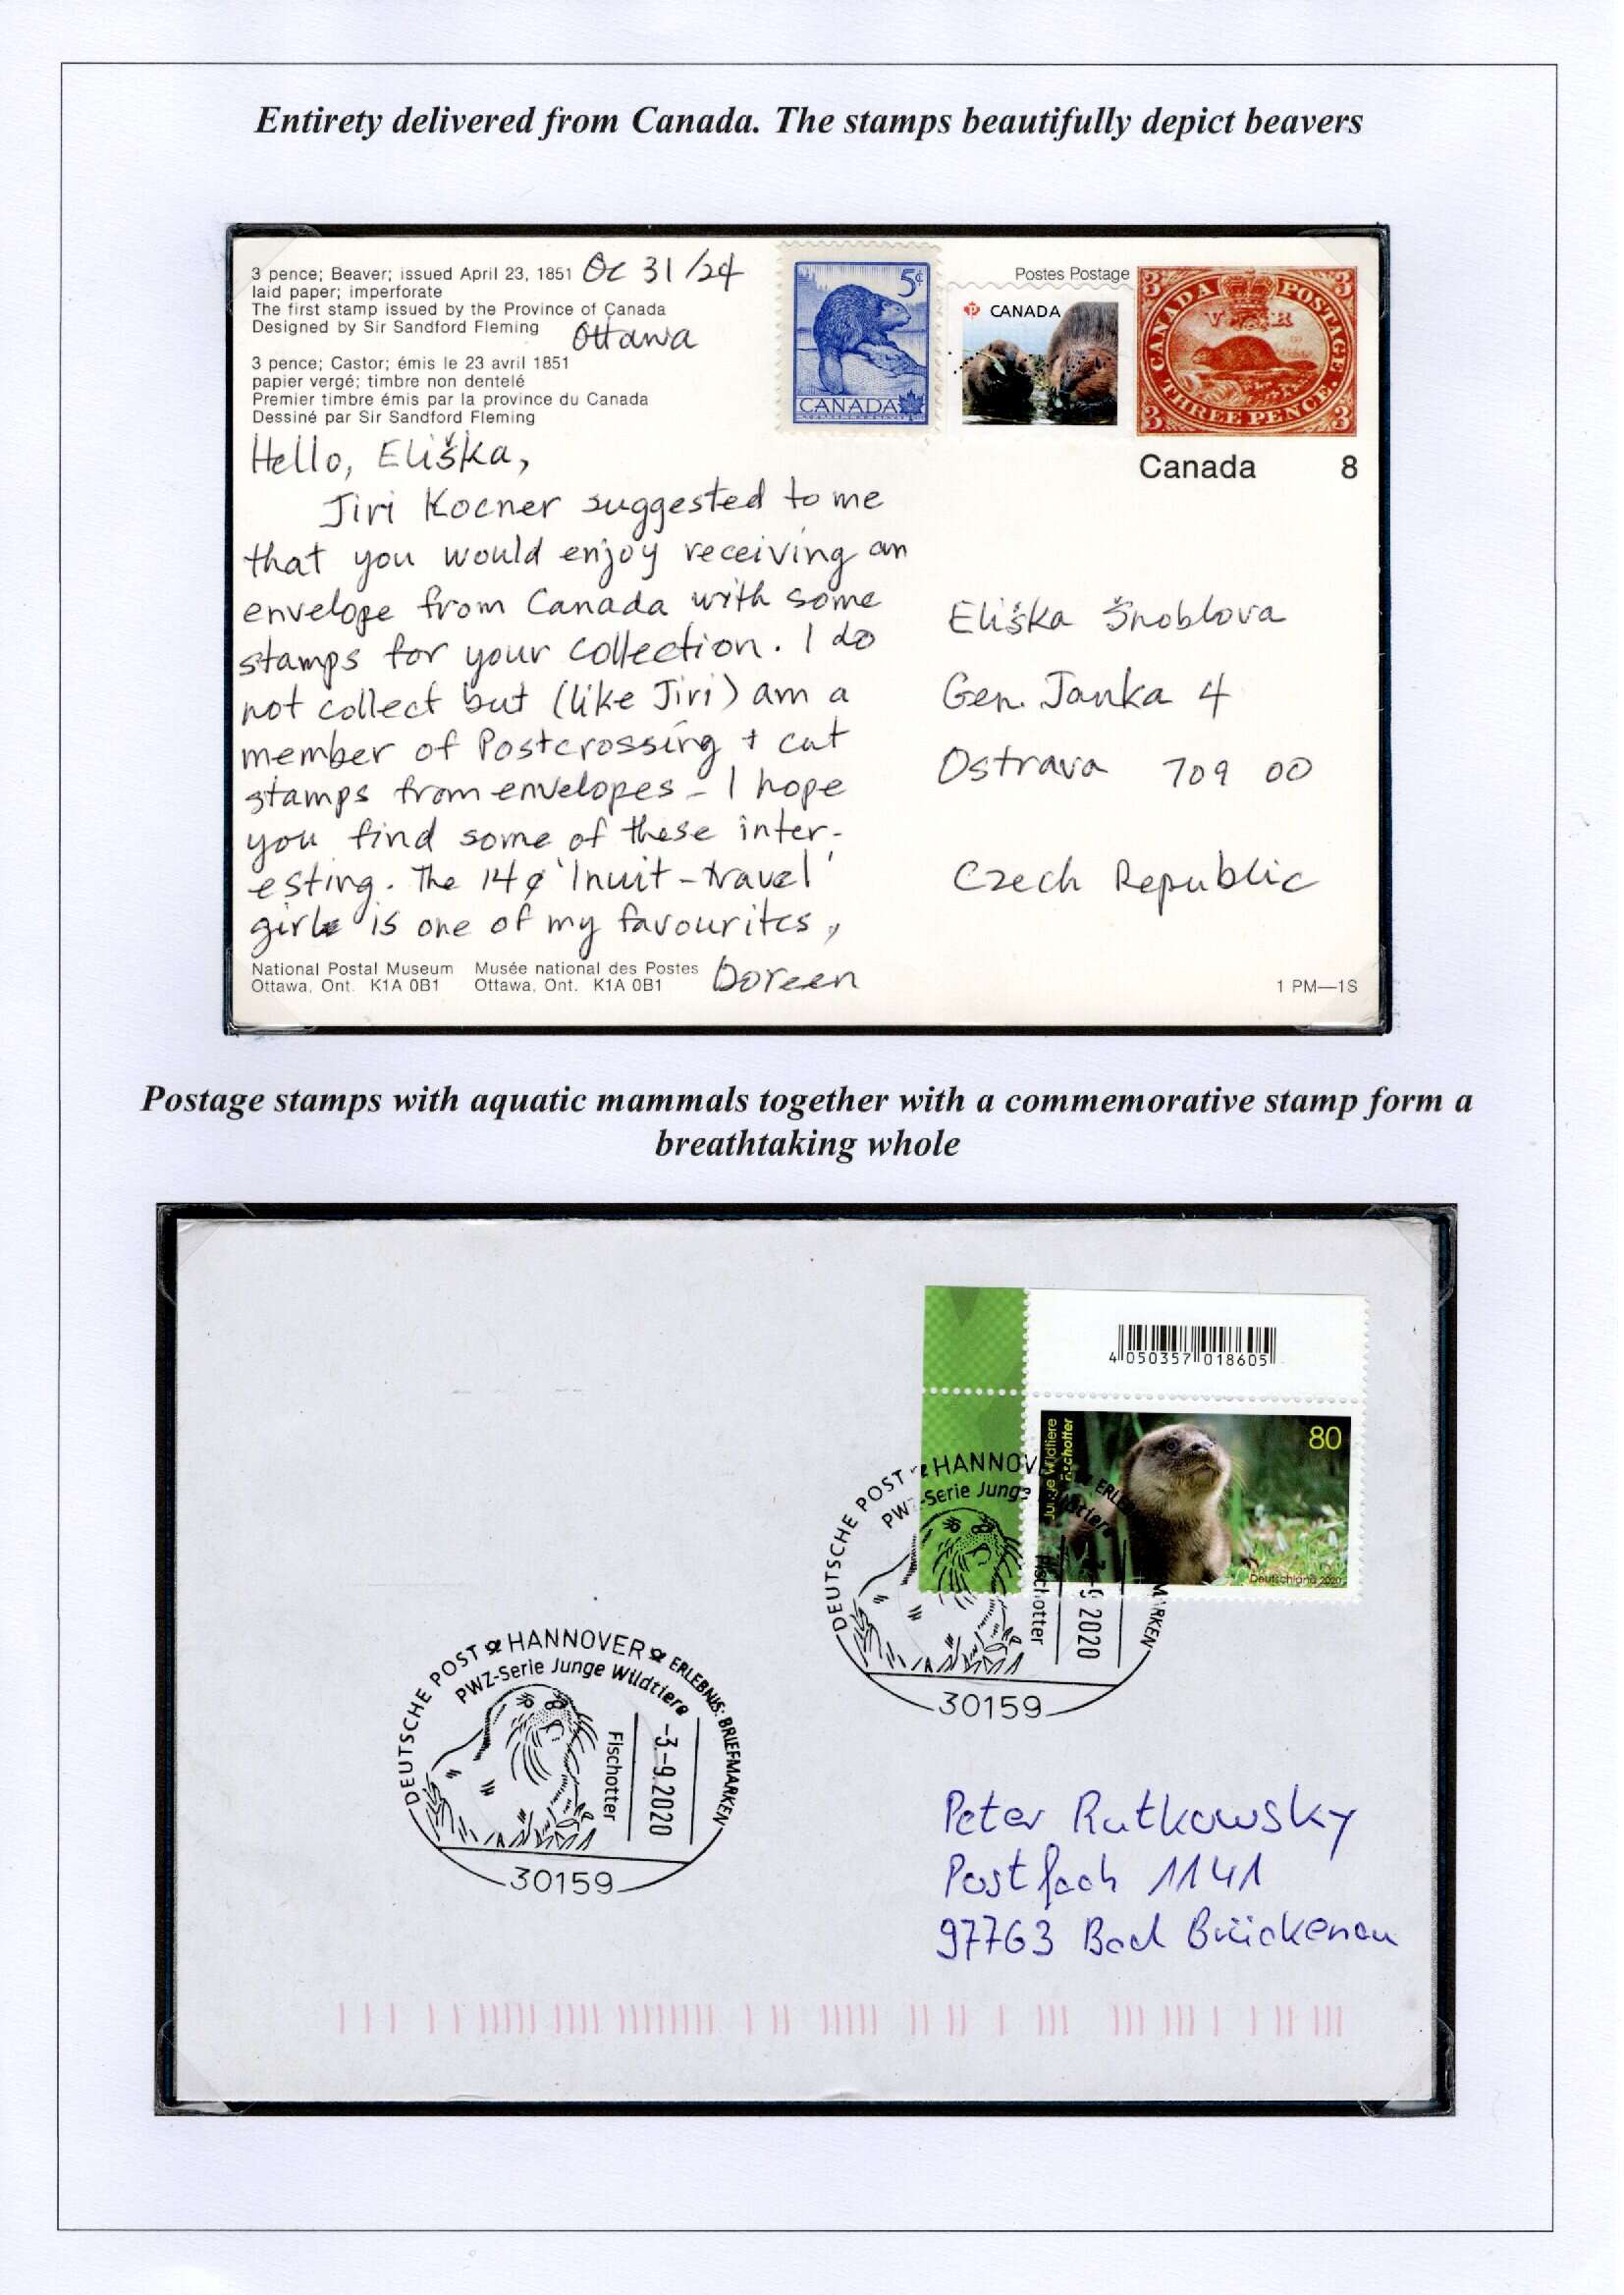 Entirety delivered from Canada. The stamps beautifully depict beavers
3 pence; Beaver; issued April 23, 1851
laid paper; imperforate
The first stamp issued by the Province of Canada
Designed by Sir Sandford Fleming
Oc 31/24
Ottawa
3 pence; Castor; émis le 23 avril 1851
papier vergé; timbre non dentelé
Premier timbre émis par la province du Canada
Dessiné par Sir Sandford Fleming
5¢
CANADA
CANADA
Postes Postage
3 3
CANADA POSTAGE
V R
THREE PENCE.
3 3
Canada 8
Hello, Eliška,
Jiri Kocner suggested to me
that you would enjoy receiving an
envelope from Canada with some
stamps for your collection. I do
not collect but (like Jiri) am a
member of Postcrossing + cut
stamps from envelopes - I hope
you find some of these inter-
esting. The 14¢ 'Inuit-travel'
girl is one of my favourites,
Doreen
Eliška Šnoblova
Gen. Janka 4
Ostrava 709 00
Czech Republic
National Postal Museum
Ottawa, Ont. K1A 0B1
Musée national des Postes
Ottawa, Ont. K1A 0B1
1 PM—1S
Postage stamps with aquatic mammals together with a commemorative stamp form a
breathtaking whole
4 050357 018605
Junge Wildtiere
Fischotter
80
Deutschland 2020
DEUTSCHE POST HANNOV ERLE MARKEN
PW -Serie Junge Wildtiere
Fischotter
9 2020
30159
DEUTSCHE POST HANNOVER ERLEBNIS: BRIEFMARKEN
PWZ-Serie Junge Wildtiere
Fischotter
-3.-9.2020
30159
Peter Rutkowsky
Postfach 1141
97763 Bad Brückenau